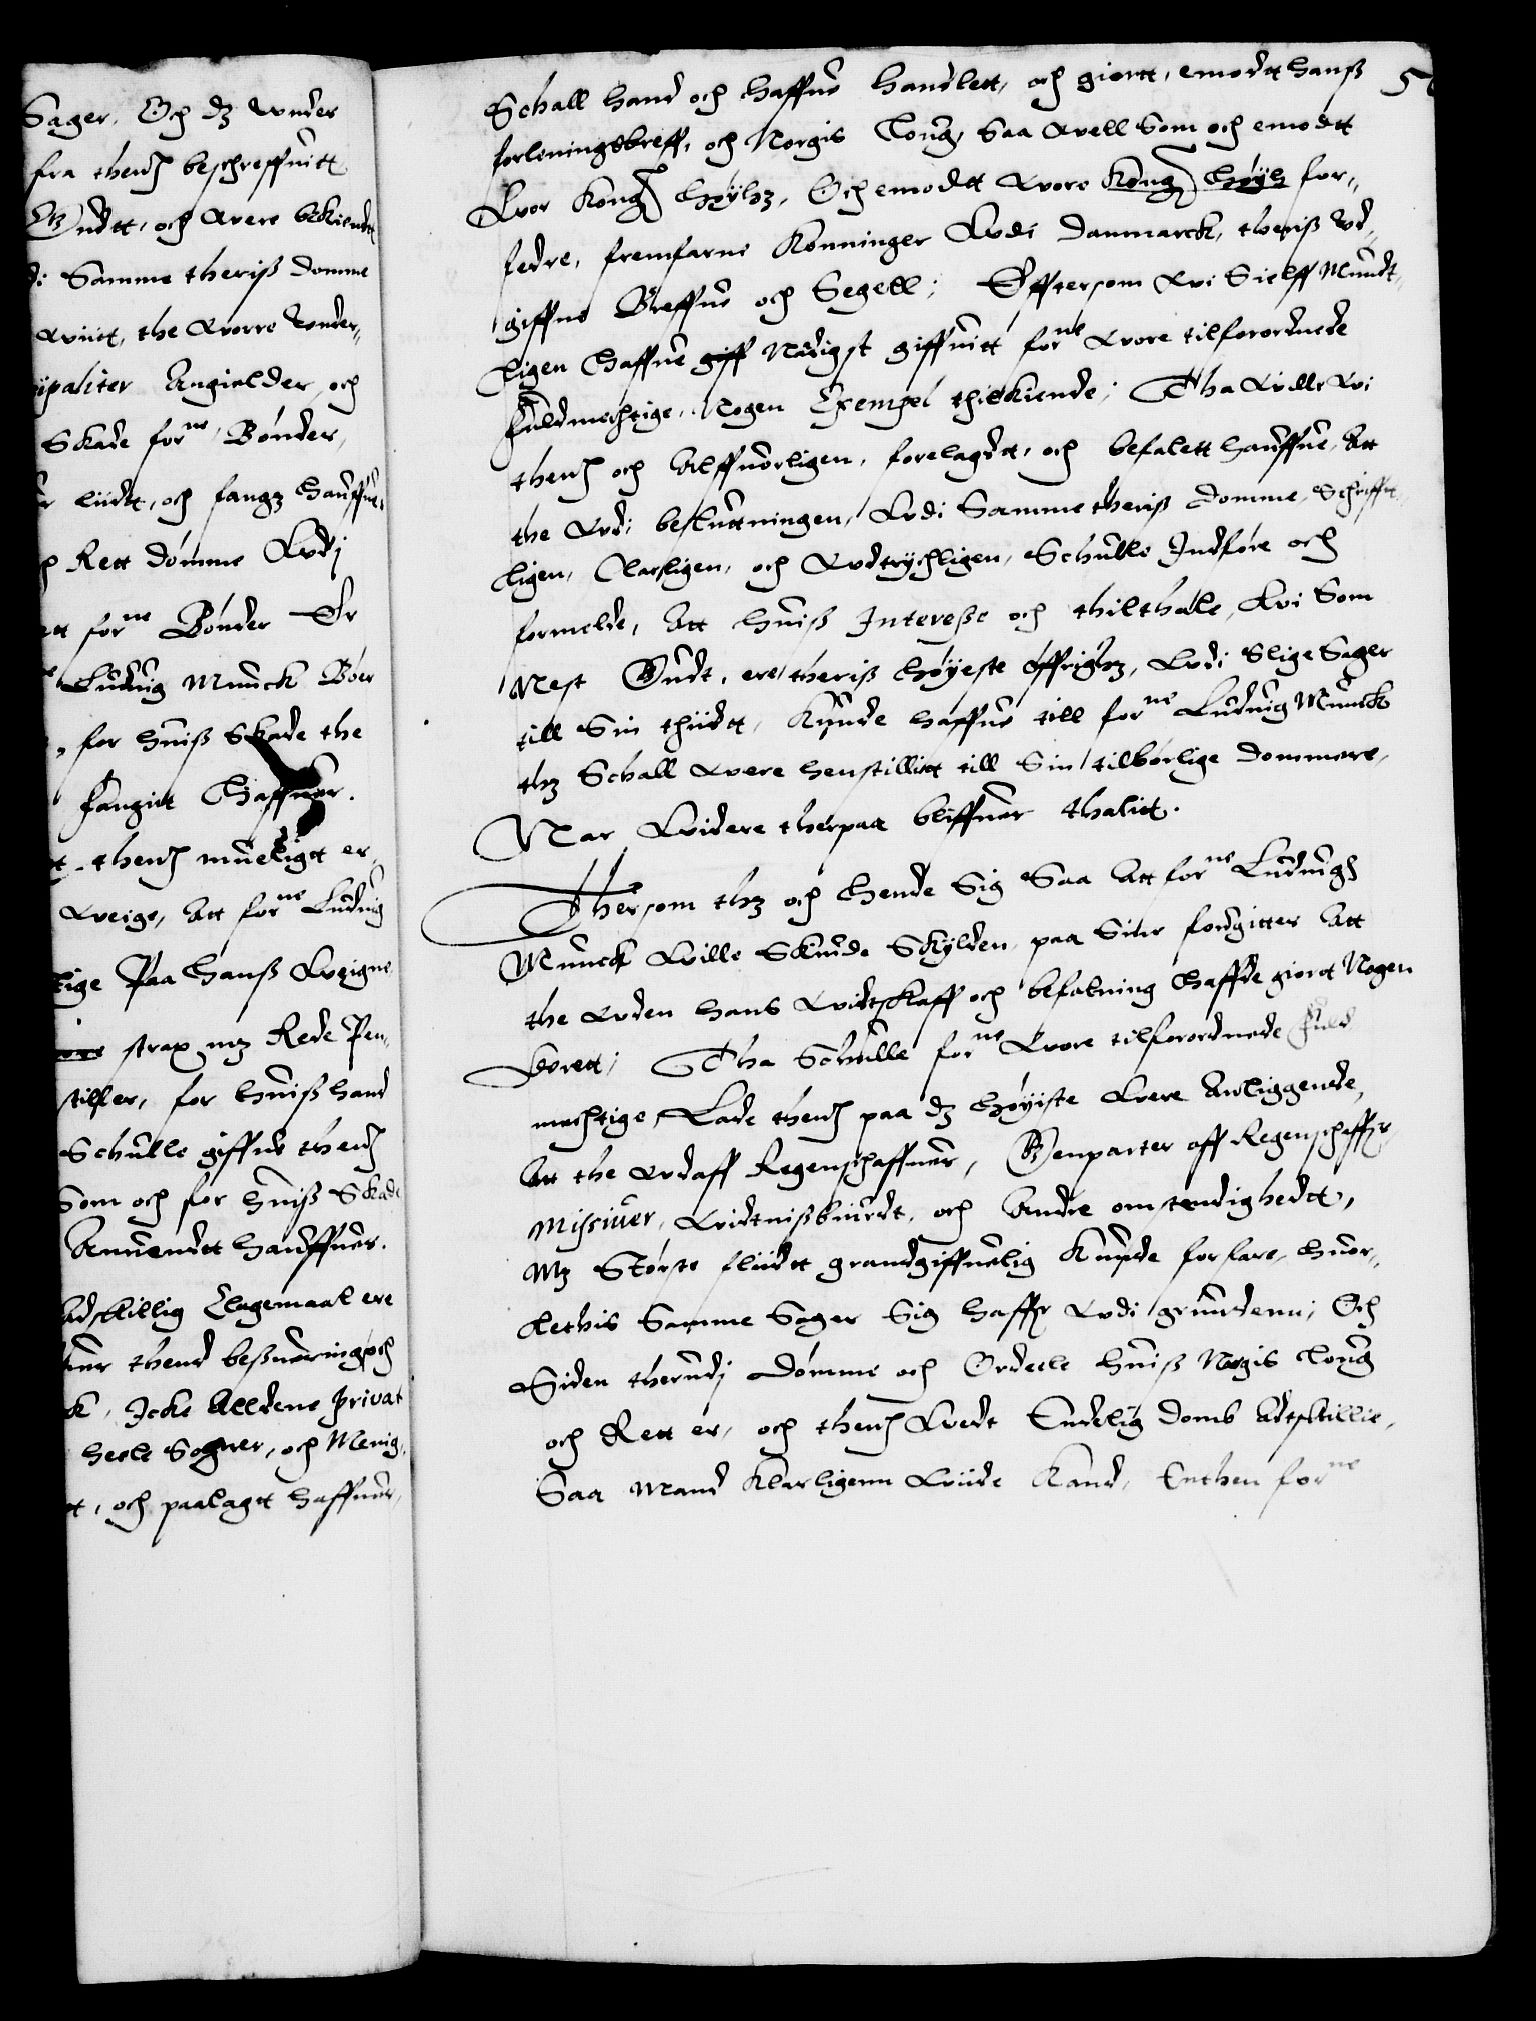 Sager, Och dz wnder
fra thend beschreffuitt
Gudtt, och were bekiendtt
di Samme theris domme
wiitt, the worre wnder,,
ipaliter Angielder, och
Skade forne Bønder,
liidtt, och fangz hauffue,
Rett dømme Udi
ett forne Bønder Er
Luduig Munck Bøer
, for huiß Skade the
fangitt Haffuer.
thend mueligtt er,
weige, Att forne Luduig
tige Paa hanß weigne
strax mz Rede Pen,
stiller, for huiß hand
Schulle giffue thend
Som och for huiß Skade
Anuendtt hauffuer.
Adskillig Clagemaal ere
thend besuering och
k, Icke Alldene privat
heele Sogner, och Menig,
tt, och paalagtt haffuer,
Schall hand och haffue handlett, och giortt, emodtt hanß 5
forleningsbreff, och Norgis Loug, Saa well Som och emodtt
Wor Kong: høyhz, Och emodtt wore Kong: høyh for,,
fedre, fremfarne Konninger Udi Danmarck, theriß Ud,,
giffne Breffue och Segell; Effttersom wi Sielff Mundt,,
ligen Haffue giff Nådigst giffuitt forne wore tilforordnede
fuldmechtige, Nogen Exempel thilkiende; Tha wille wi
thend och Alffuorligen, forelagdt, och befalett hauffue, Att
the Udi besluttningen, Udi Samme theriß domme, Schrifft,,
ligen, Clarligen, och Udtrychligen, Schulle Indføre och
formelde, Att huiß Interesse och thilthale, wi Som
Nest Gudt, ere theriß høyeste øffrighz, Udi Slige Sager
till Sin thiidtt, Kunde haffue till forne Luduig Munck
thz Schall were henstillitt till Sin tilbørlige dommere,
Nar widere therpaa bliffuer thalitt.
Thersom thz och hende Sig Saa Att forne Luduig
Munck wille Skiude Skylden, paa Sine fougitter Att
the uden hans widtskaff och befalning Haffde giortt Nogen
Uorett; Tha Schulle forne wore tilforordnede fuld
mechtige, Lade thend paa dz høyiste were Anliggende,
Att the Udaff Regenschaffuer, Genparter aff Regenschaffr
Missiuer, widtnißbiurdt, och Andre omstendighedtt,
Mz Største fliidtt grandgiffuelig Kunde forfare, huor,,
Ledhis Samme Sager Sig haffr Udi grundenn; Och
Siden therudj Dømme och Ordeele huiß Norgis Loug
och Rett er, och thend wedt Endelig domb Adtskillie,
Saa Mand Klarligenn wiide Kand, Enthen forne